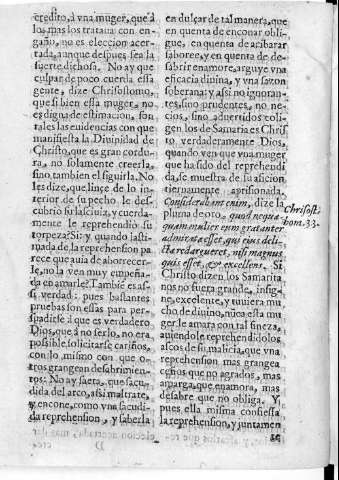 credito, à vna muger, que à
los mas los trataua con en-
gaño, no es eleccion acer-
tada, aunque despues sea la
fuerte dichosa. No ay que
culpar de poco cuerda essa
gente, dize Chrisostomo,
que si bien essa muger no
es digna de estimacion, son
tales las euidencias con que
manifiesta la Diuinidad de
Christo, que es gran cordu-
ra, no solamente creerla,
sino tambien el siguirla. No
les dize, que lince de lo in-
terior de su pecho, le des-
cubriò su lasciuia, y cuerda-
mente le reprehendiò su
torpeza? Si; y quando lasti-
mada de la reprehension pa-
rece que auia de aborrecer-
le, no la ven muy empeña-
da en amarle? Tambiē es as-
si verdad: pues bastantes
pruebas son essas para per-
suadirse à que es verdadero
Dios, que à no serlo, no era
possible solicitarse cariños,
con lo mismo con que o-
tros grangean desabrimien-
tos: No ay saeta, que sacu-
dida del arco, assi maltrate,
y encone, como vna sacudi-
da reprehension, y saberla
endulçar de tal manera, que
en quenta de enconar obli-
gue, en quenta de acibarar
saboree, y en quenta de de-
sabrir enamore, arguye vna
eficacia diuina, y vna sazon
soberana: y assi no ignoran-
tes, sino prudentes, no ne-
cios, sino aduertidos coli-
gen los de Samaria es Chris-
to verdaderamente Dios,
quando ven que vna muger
que ha sido del reprehendi-
da, se muestra de su aficion
tiernamente aprisionada.
Considerabam enim, dize la
pluma de oro, quod nequa-
quam mulier eum gratanter
admirata esset, qui eius deli-
cta redargueret, nisi magnus
quis esset, & excellens. Si
Christo dizen los Samarita
nos no fuera grande, insig-
ne, excelente, y tuuiera mu
cho de diuino, nūca esta mu
ger le amara con tal fineza,
auiendole reprehendido los
ascos de su malicia, que vna
reprehension mas grangea
ceños que no agrados, mas
amarga, que enamora, mas
desabre que no obliga. Y
pues ella misma confiessa
la reprehension, y juntamen
Chrisost.
hom. 33.